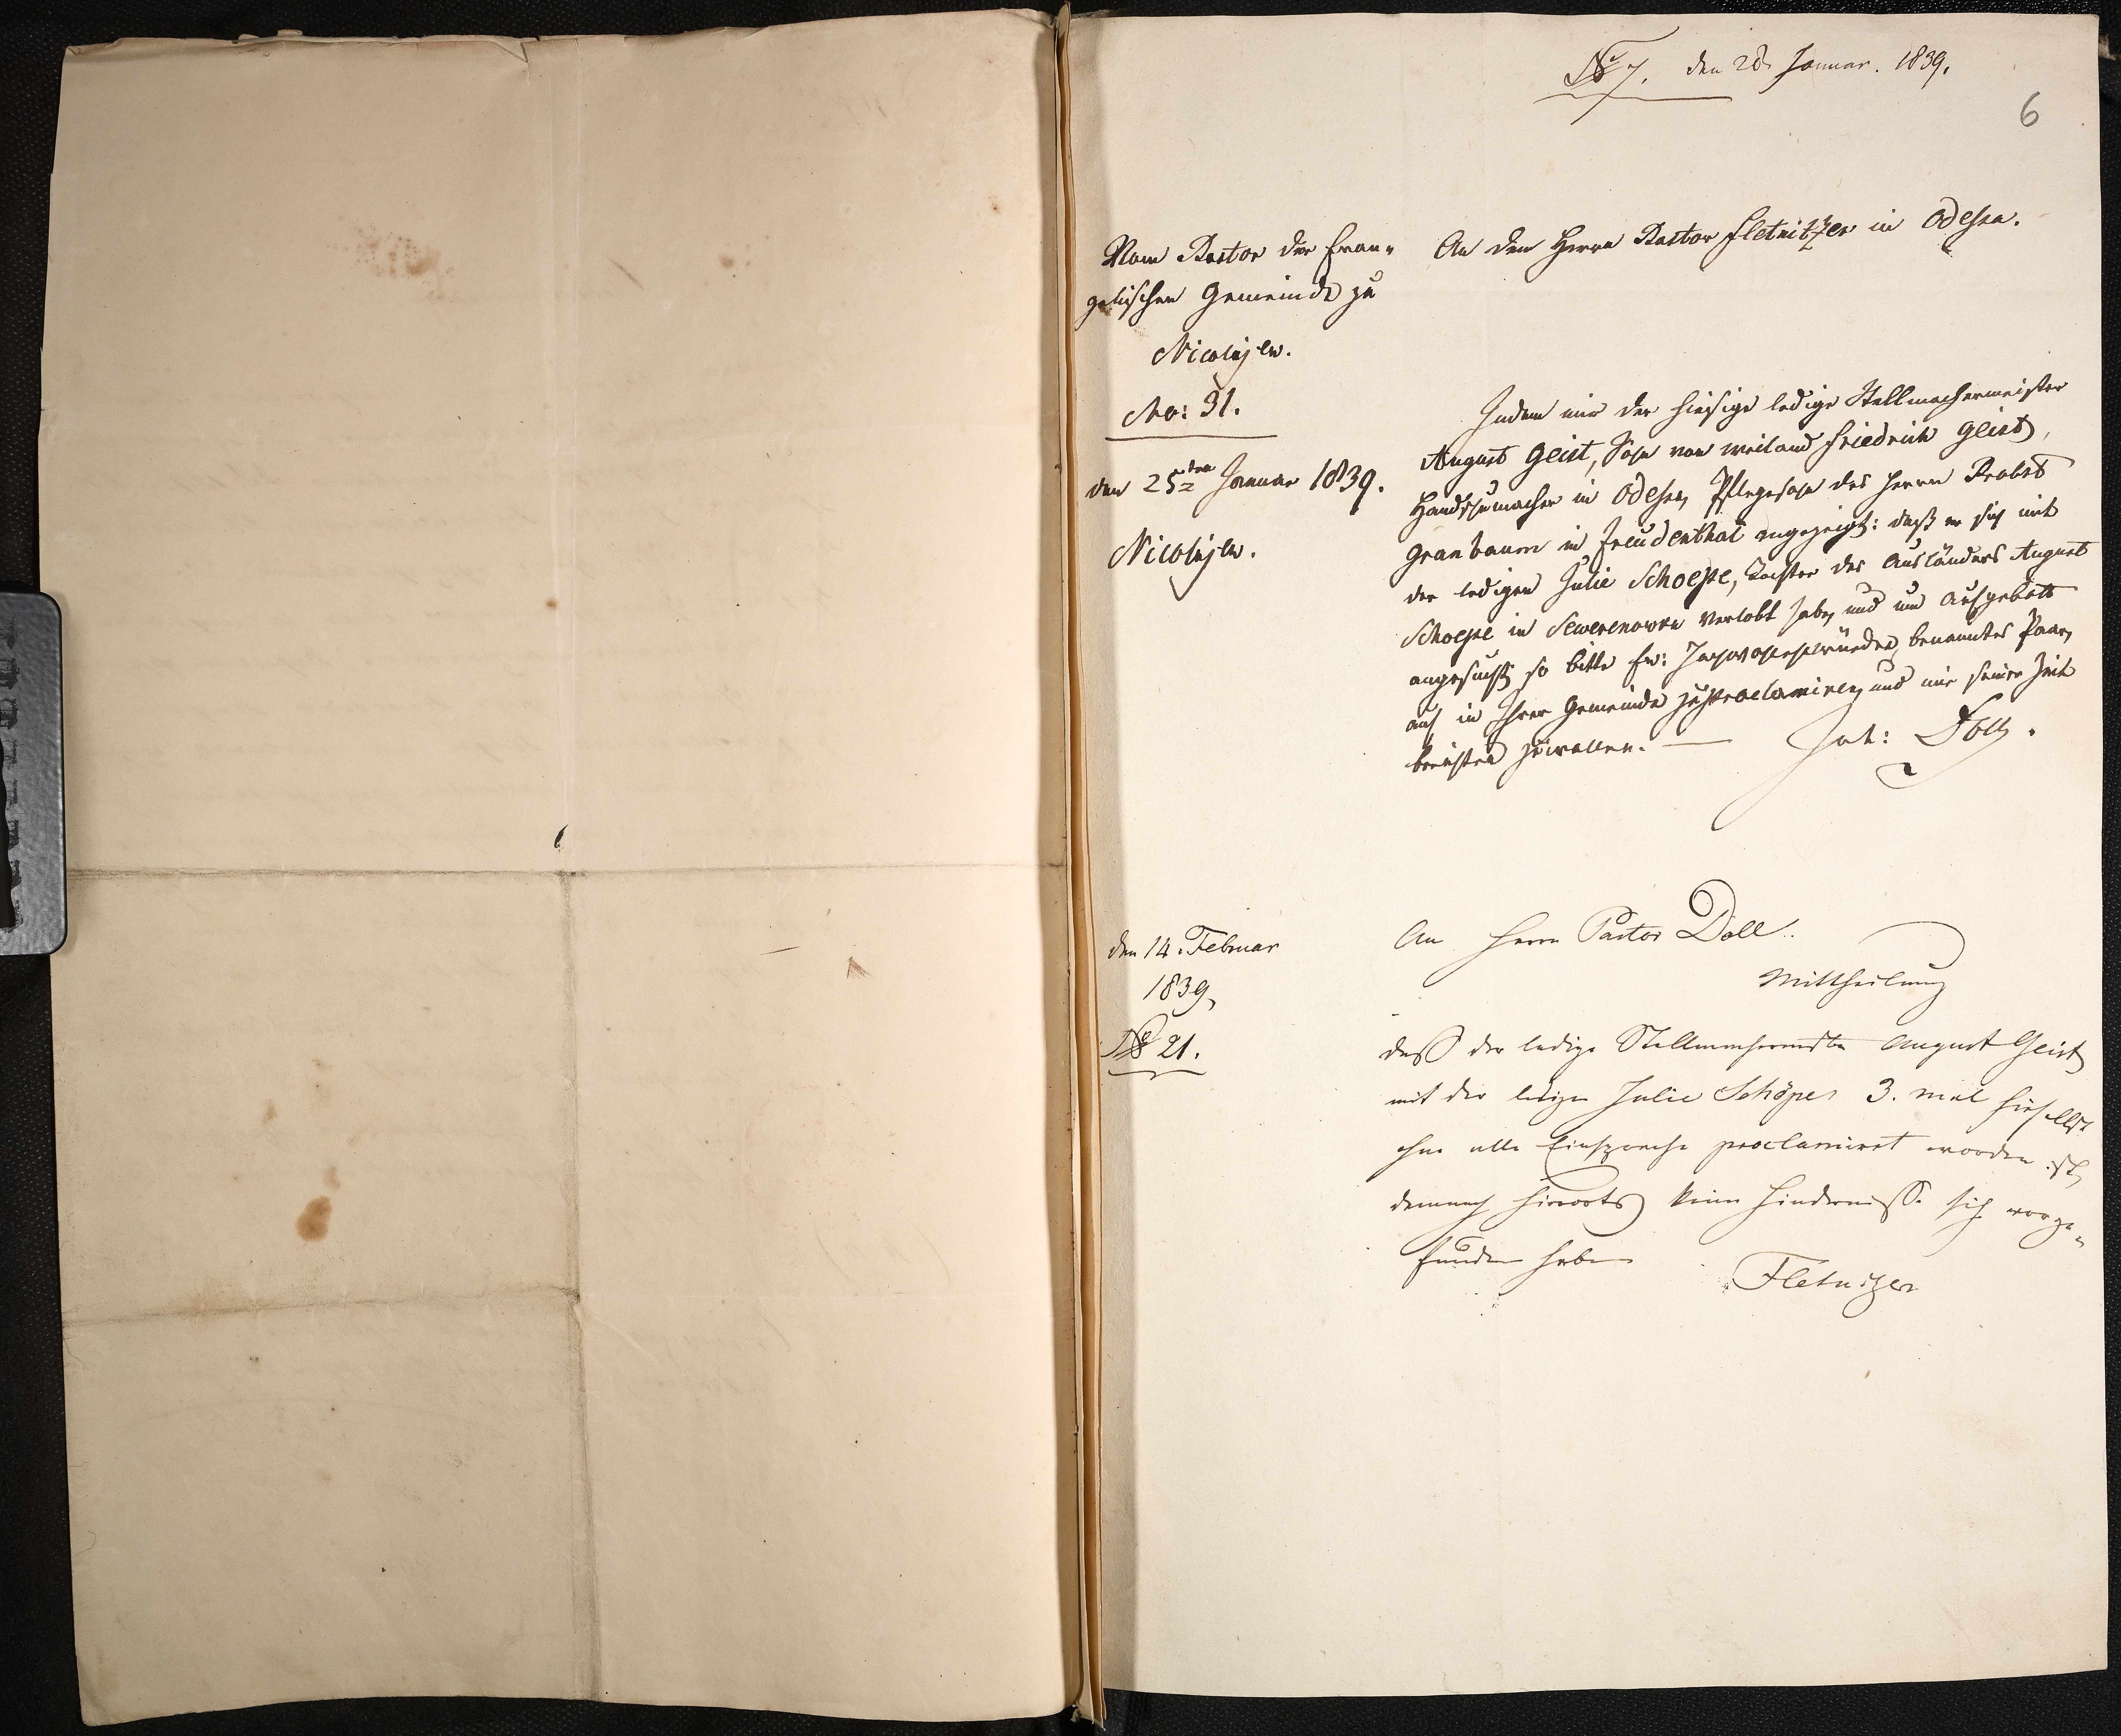 No 7. den 28. Januar. 1839.
6
Vom Pastor der Evan-
gelischen Gemeinde zu
Nicolajew.
No: 31.
den 25ten Januar 1839.
Nicolajew.
An den Herrn Pastor Fletnitzer in Odessa.
Indem mir der hiesige ledige Stellmachermeister
August Geist, Sohn von weiland Friedrich Geist,
Handschumacher in Odessa, Pflegesohn des Herrn Probst
Granbaum in Freudenthal angezeigt: daß er sich mit
der ledigen Julie Schoepe, Tochter des Ausländers August
Schoepe in Sewerenowka verlobt habe, und um Aufgebott
angesucht, so bitte Ew: Hochwohlehrwürden, benanntes Paar,
auch in Ihrer Gemeinde zu proclamiren, und mir seiner Zeit
berichten zu wollen. — Joh: Doll.
den 14. Februar
1839,
No 21.
An Herrn Pastor Doll.
Mittheilung
daß der ledige Stellmachermstr August Geist,
mit der ledigen Julie Schöpe, 3. mal hieselbst
ohne alle Einsprache proclamiret worden ist,
demnach hierorts keine Hindernisse sich vorge-
funden haben
Fletnitzer